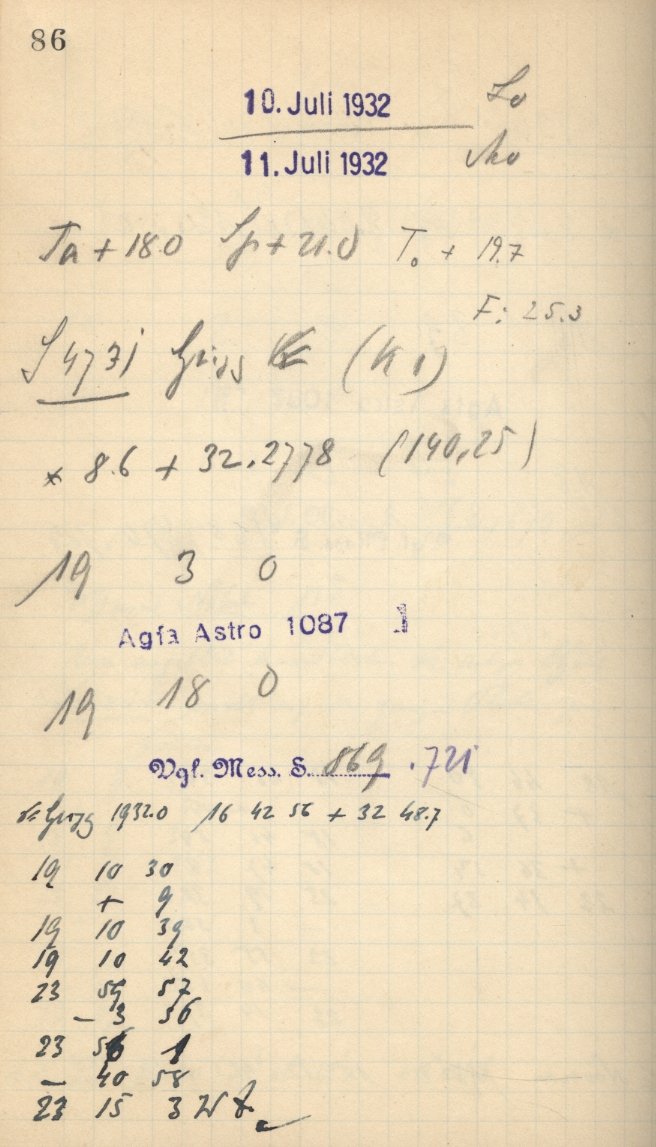 86
10. Juli 1932 So
11. Juli 1932 Mo
Ta + 18.0 Sp + 21.0 T. + 19.7
F: 25.3
S 4731 (K 1)
* 8.6 + 32.2778 (140,25)
19 3 0
Agfa Astro 1087 1
19 18 0
Vgl. Mess. S. 869 .721
1932.0 16 42 56 + 32 48.7
19 10 30
+ 9
19 10 39
19 10 42
23 59 57
- 3 56
23 56 1
- 40 58
23 15 3